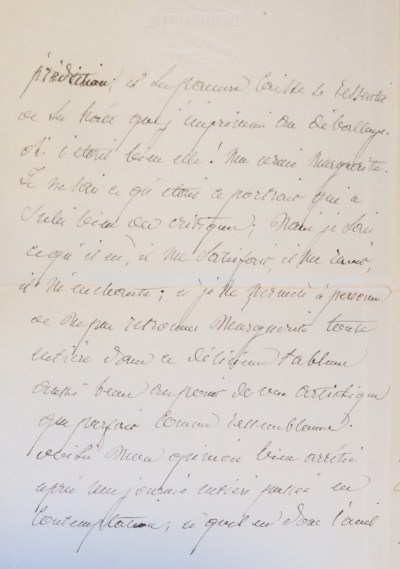 prédiction; et
de la que j'imprimai au déballage.
Oh! c'était bien elle! ma vraie Marguerite.
Je ne sais ce qu'était ce portrait qui a
subi bien des critiques; mais je sais
ce qu'il est, il me satisfait, il me ravit,
il m'enchante; et je ne permets à personne
de ne pas retrouver Marguerite toute
entière dans ce délicieux tableau
aussi beau au point de vue artistique
que parfait comme ressemblance.
Voilà mon opinion bien arrêtée
après une journée entière passée en
contemplation; et quel est donc l'ami